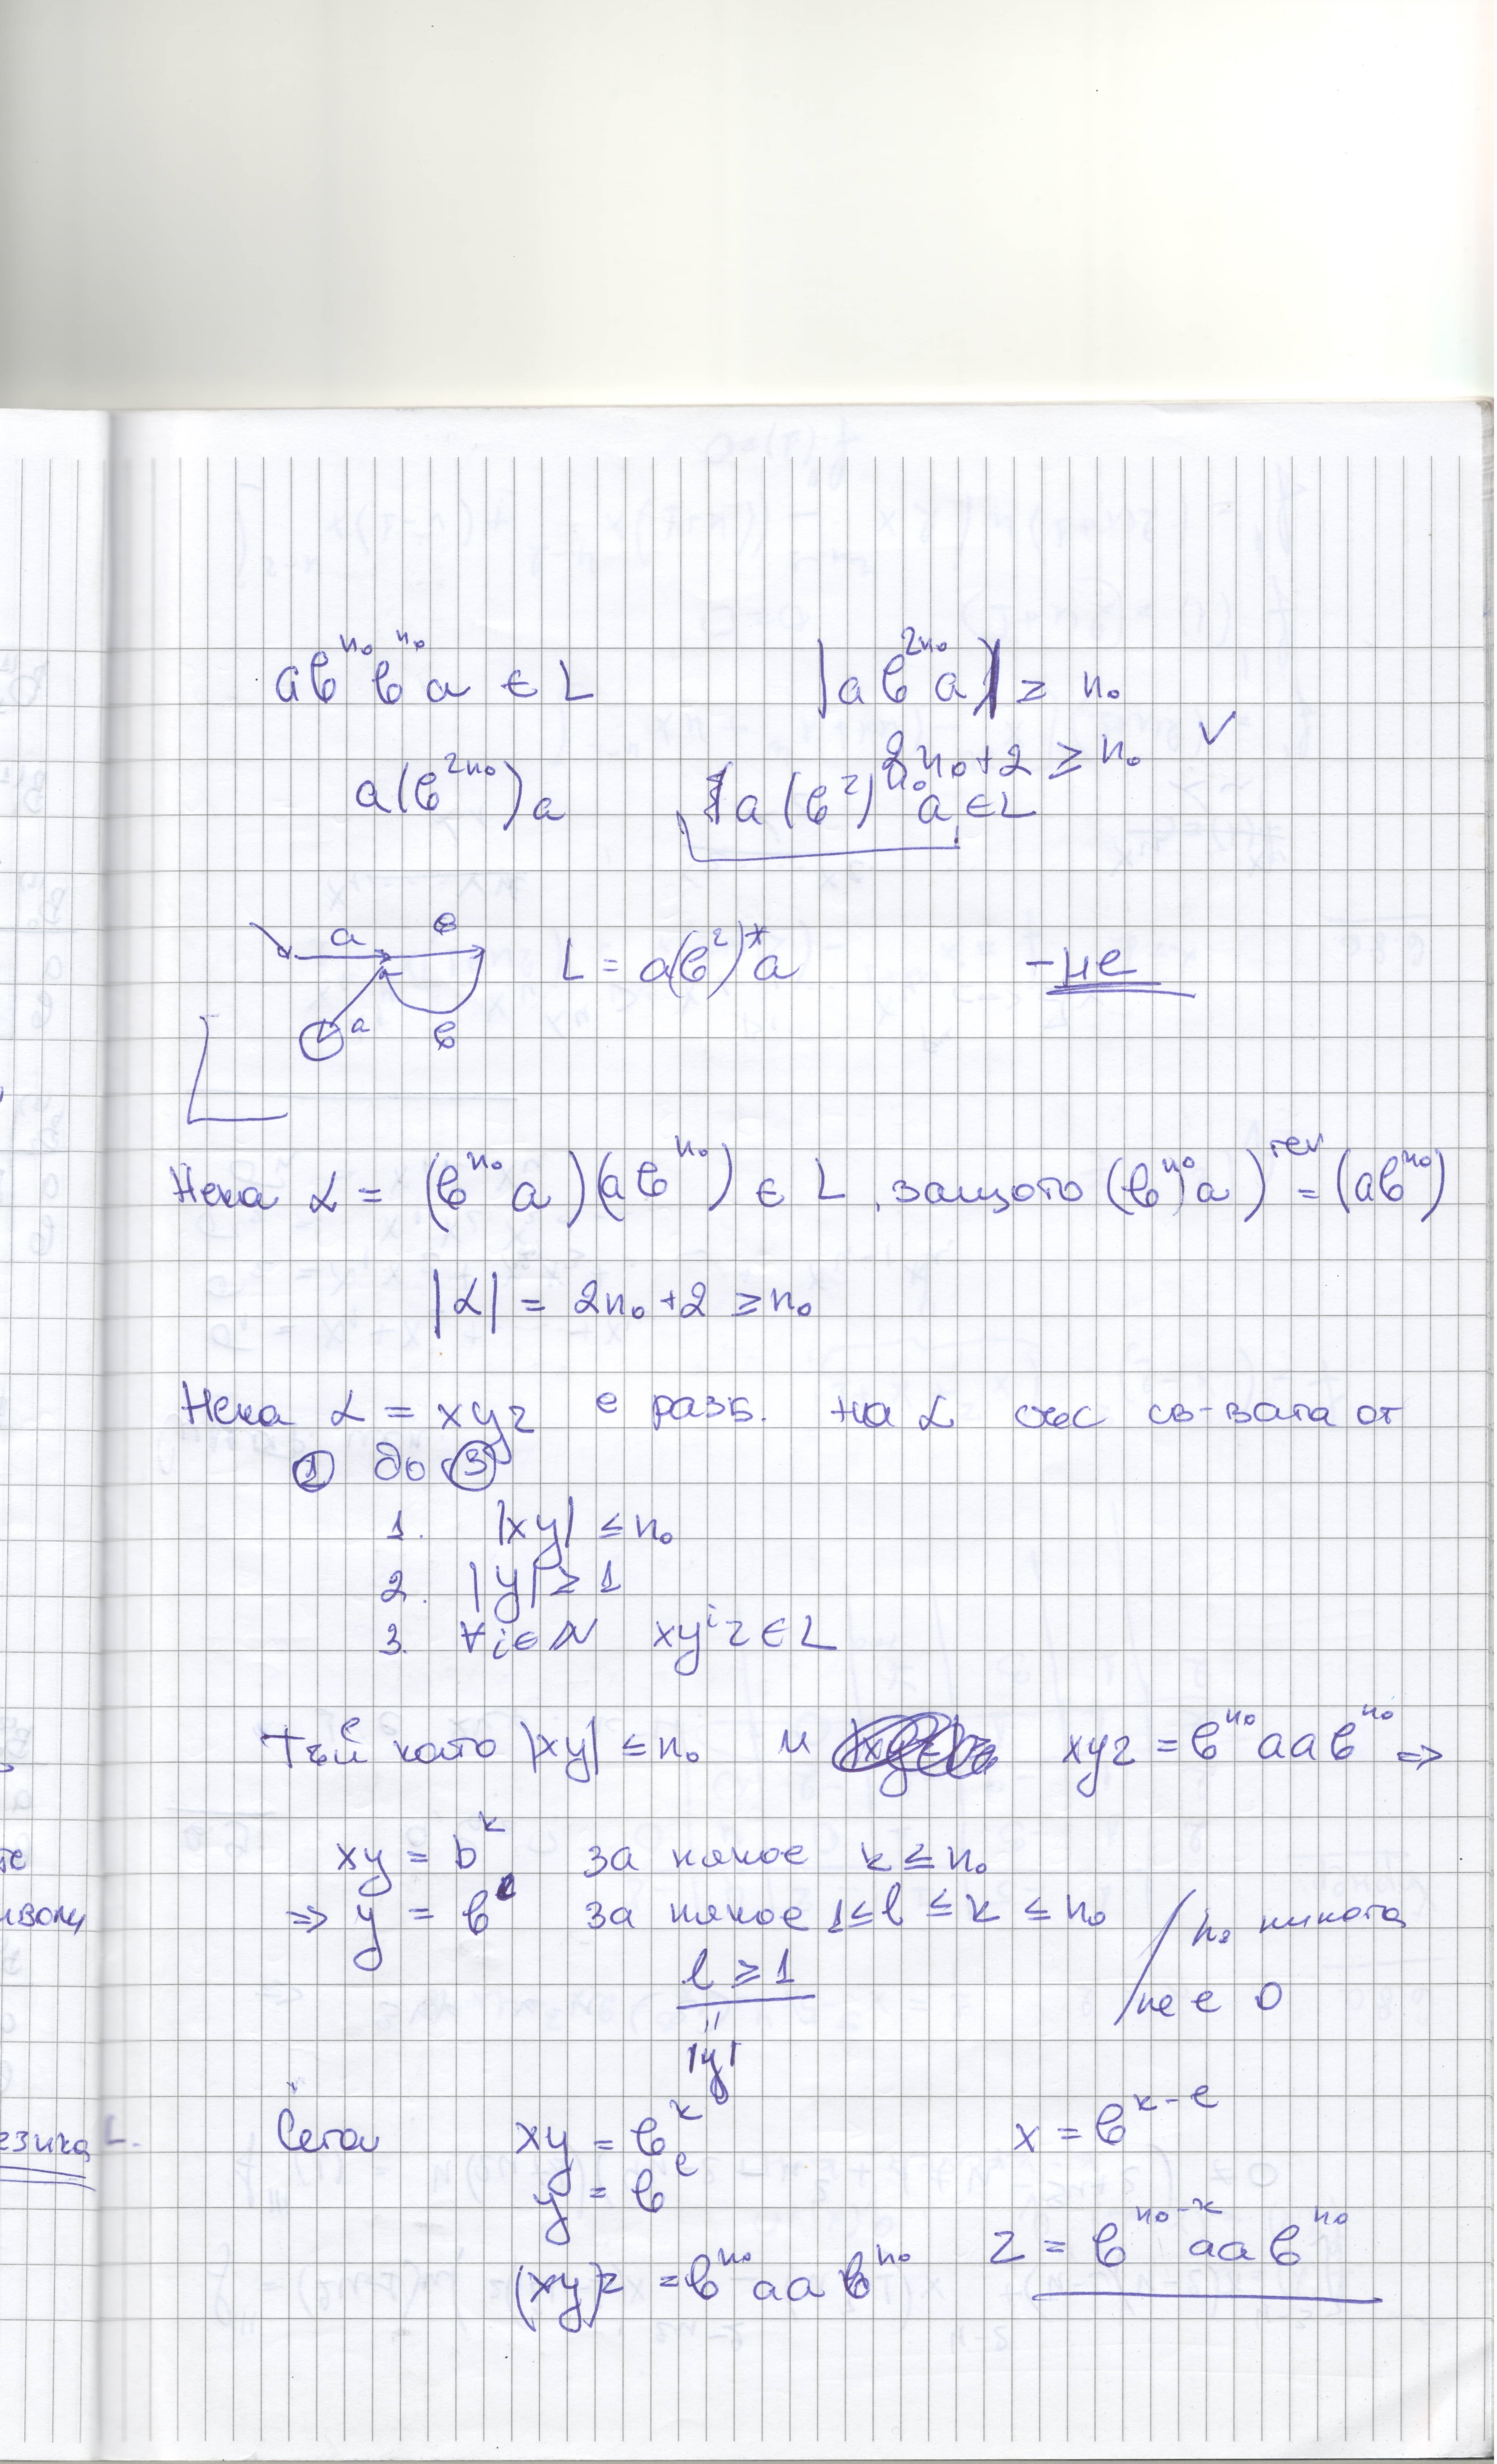 aв^{n₀} в^{n₀} a ∈ L |a в^{2n₀} a| ≥ n₀
2n₀+2 ≥ n₀ ✓
a(в^{2n₀})a a(в²)^{n₀} a ∈ L
a в
L = a(в²)*a – не
a в
Нека α = (в^{n₀} a)(a в^{n₀}) ∈ L, защото (в^{n₀} a)^{rev} = (aв^{n₀})
|α| = 2n₀+2 ≥ n₀
Нека α = xyz е разб. на α със св-вата от
① до ③
1. |xy| ≤ n₀
2. |y| ≥ 1
3. ∀i∈N xyⁱz ∈ L
Тъй като |xy| ≤ n₀ и xyz = в^{n₀} a a в^{n₀} ⇒
xy = b^k за някое k ≤ n₀
⇒ y = в^l за някое 1 ≤ l ≤ k ≤ n₀ / n₀ никога
l ≥ 1 / не е 0
"
|y|
Сега xy = в^k x = в^{k-l}
y = в^l
(xy)z = в^{n₀} a a в^{n₀} z = в^{n₀-k} a a в^{n₀}